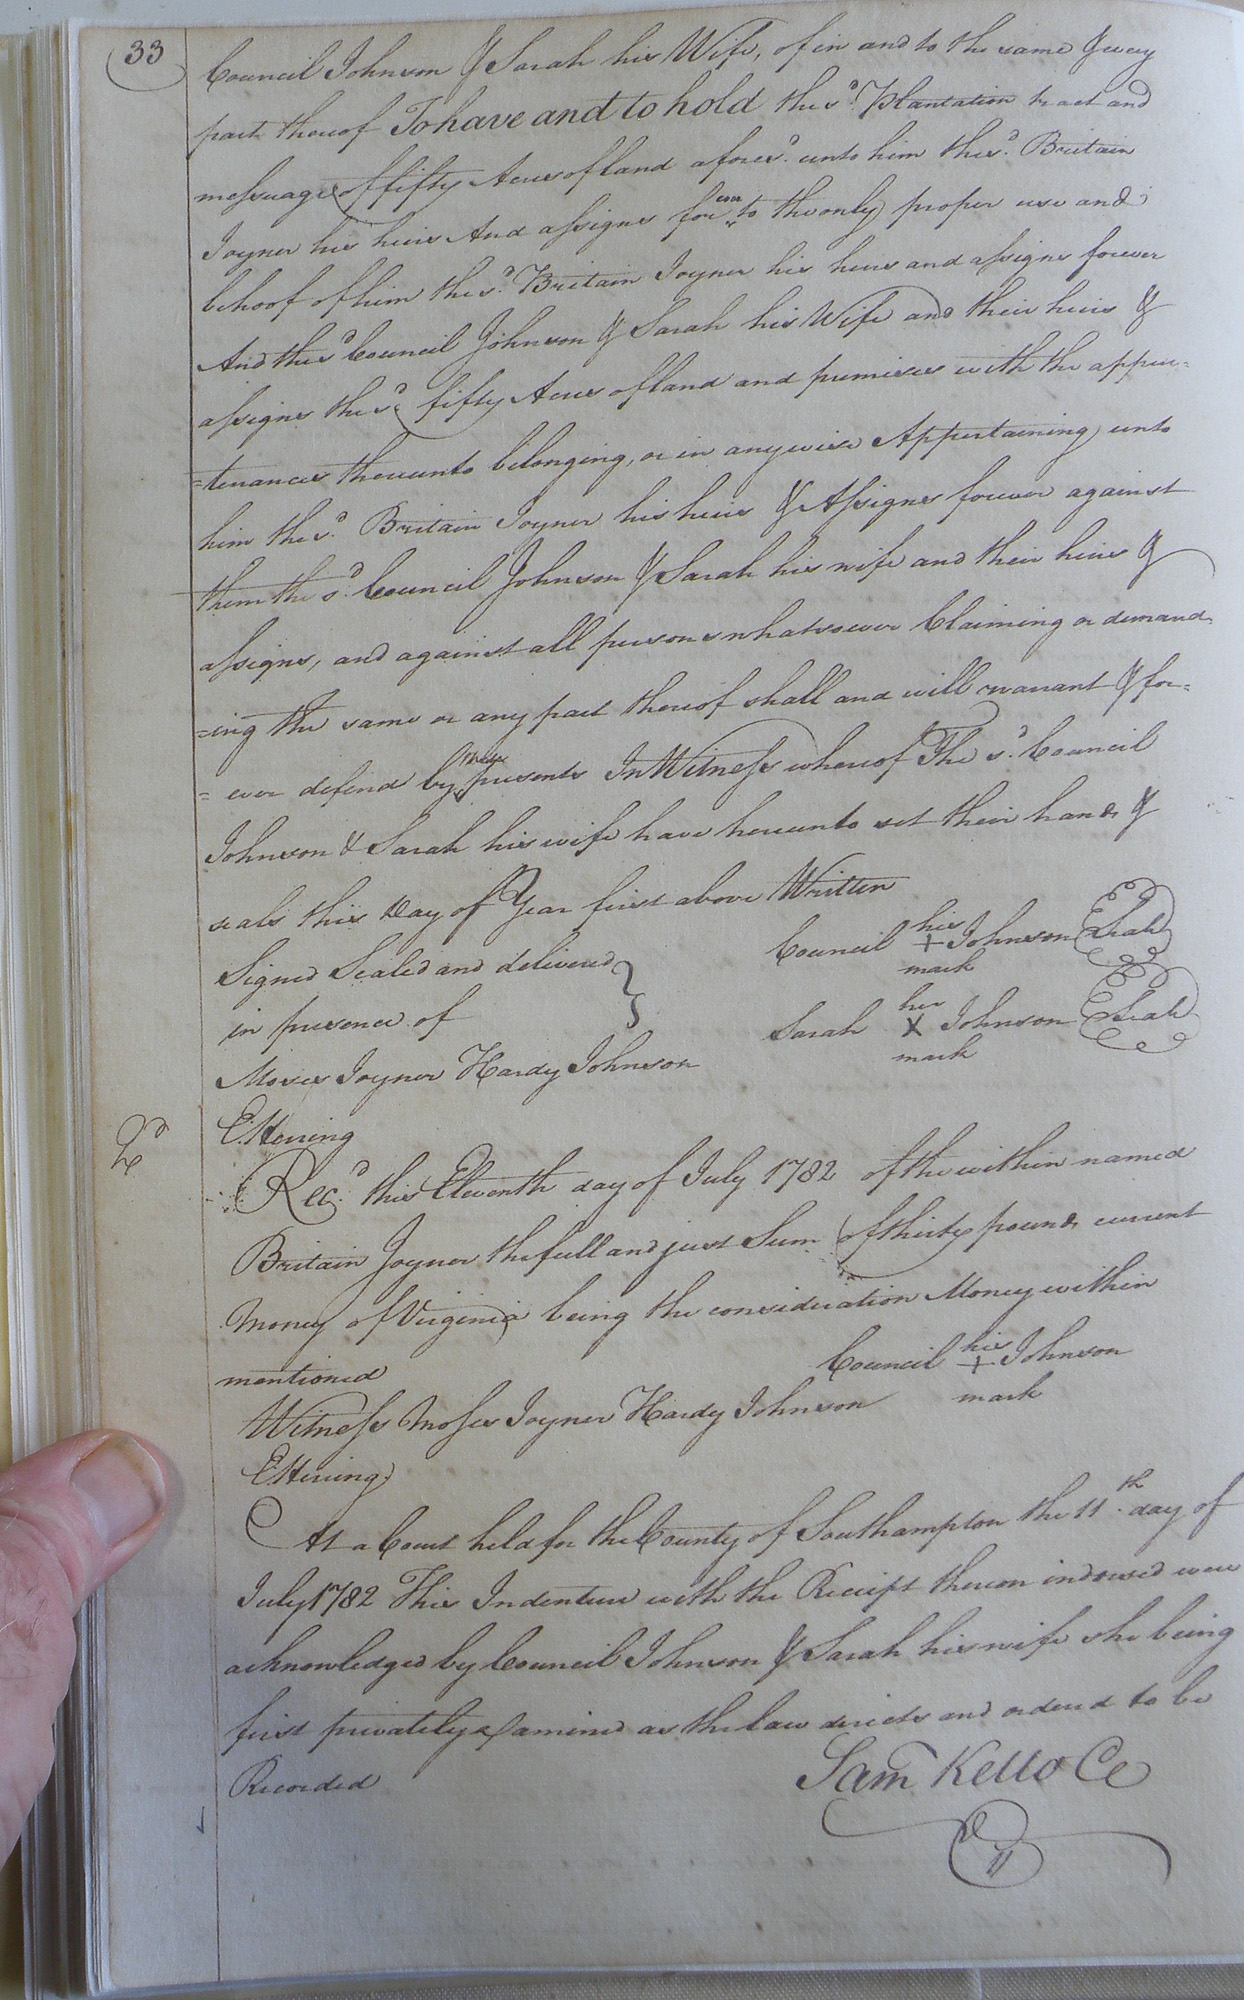 33
Council Johnson & Sarah his Wife, of in and to the same & every
part thereof To have and to hold the sd. Plantation tract and
messuage of fifty Acres of land afores.d unto him the sd. Britain
Joyner his heirs And assigns forever to the only proper use and
behoof of him the sd. Britain Joyner his heirs and assigns forever
And the sd Council Johnson & Sarah his Wife and their heirs &
assigns the sd. fifty Acres of land and premises with the appur=
=tenances thereunto belonging, or in any wise Appertaining unto
him the sd. Britain Joyner his heirs & Assigns forever against
them the sd. Council Johnson & Sarah his wife and their heirs &
assigns, and against all persons whatsoever Claiming or demand=
=ing the same or any part thereof shall and will warrant & for=
=ever defend by these presents In Witness whereof The sd. Council
Johnson & Sarah his wife have hereunto set their hands &
seals this Day of Year first above Written
Signed Sealed and delivered } Council his + Johnson Seal
mark
in presence of
Sarah her X Johnson Seal
mark
Moses Joyner Hardy Johnson
E. Herring
Recd. this Eleventh day of July 1782 of the within named
Britain Joyner the full and just Sum of thirty pounds current
Money of Virginia being the consideration Money within
mentioned Council his + Johnson
mark
Witness Moses Joyner Hardy Johnson
E Herring
At a Court held for the County of Southampton the 11th day of
July 1782 This Indenture with the Receipt thereon indorsed were
acknowledged by Council Johnson & Sarah his wife she being
first privately examined as the law directs and orderd to be
Recorded
Sam Kello CC